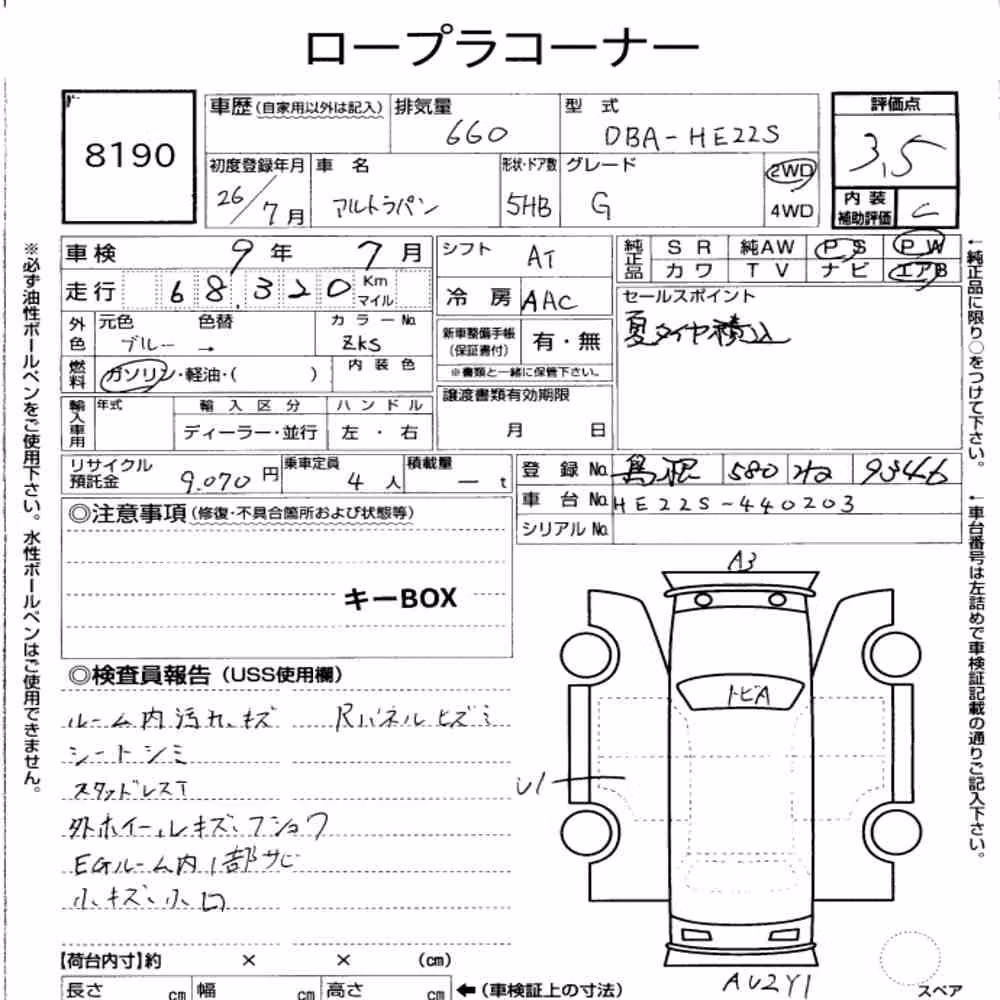 ロープラコーナー
8190
車歴(自家用以外は記入) 排気量 660 型 式 DBA-HE22S
評価点 3.5
初度登録年月 26/7月 車 名 アルトラパン 形状・ドア数 5HB グレード G 2WD 4WD
内装補助評価 C
車検 9年 7月
走行 68,320 Km マイル
外色 元色 ブルー 色替 → カラーNo. ZKS
燃料 ガソリン・軽油・( ) 内装色
輸入車用 年式 輸入区分 ディーラー・並行 ハンドル 左・右
シフト AT
冷房 AAC
新車整備手帳(保証書付) 有・無
※書類と一緒に保管下さい。
譲渡書類有効期限
月 日
純正品 SR 純AW PS PW
カワ TV ナビ エアB
セールスポイント
夏タイヤ積込
リサイクル預託金 9,070円 乗車定員 4人 積載量 ー t
登録No. 島根 580 9346
車台No. HE22S-440203
シリアルNo.
◎注意事項(修復・不具合箇所および状態等)
キーBOX
◎検査員報告(USS使用欄)
ルーム内汚れ、キズ Rパネルヒズミ
シートシミ
スタッドレスT
外ホイールキズ、フショク
EGルーム内1部サビ
小キズ、小凹
A3
トビA
U1
AU2Y1
スペア
【荷台内寸】約 × × (cm)
長さ cm 幅 cm 高さ cm ←(車検証上の寸法)
※必ず油性ボールペンをご使用下さい。水性ボールペンはご使用できません。
←純正品に限り○をつけて下さい。
←車台番号は左詰めで車検証記載の通りご記入下さい。